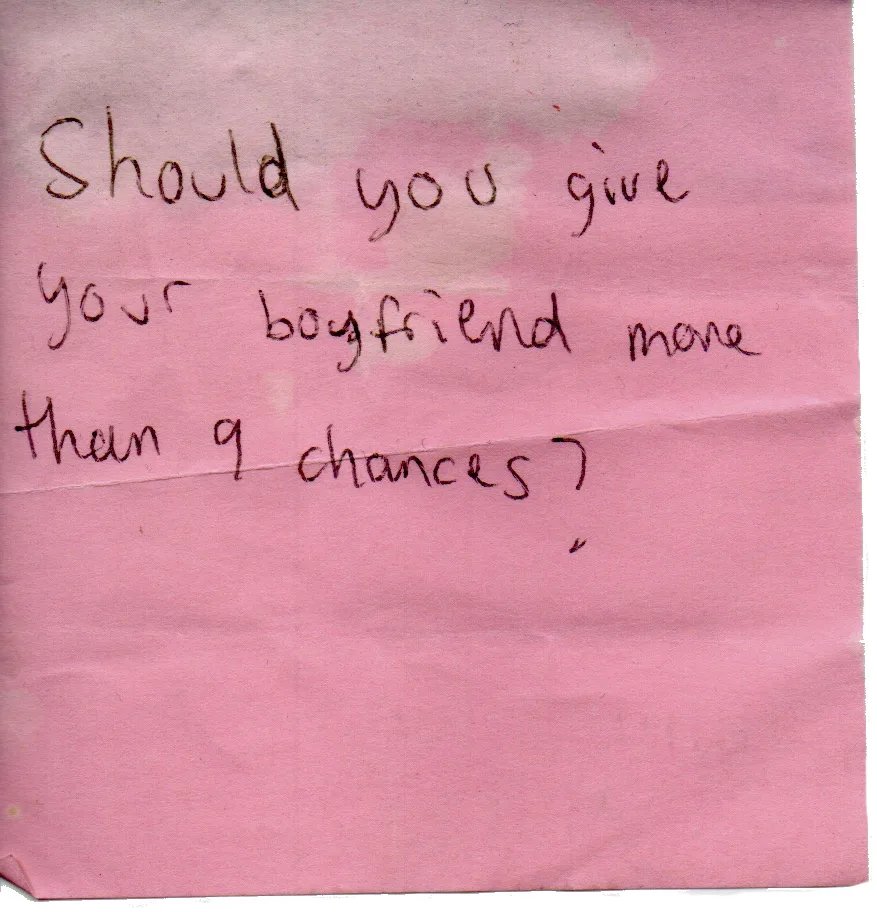 Should you give
your boyfriend more
than 9 chances?